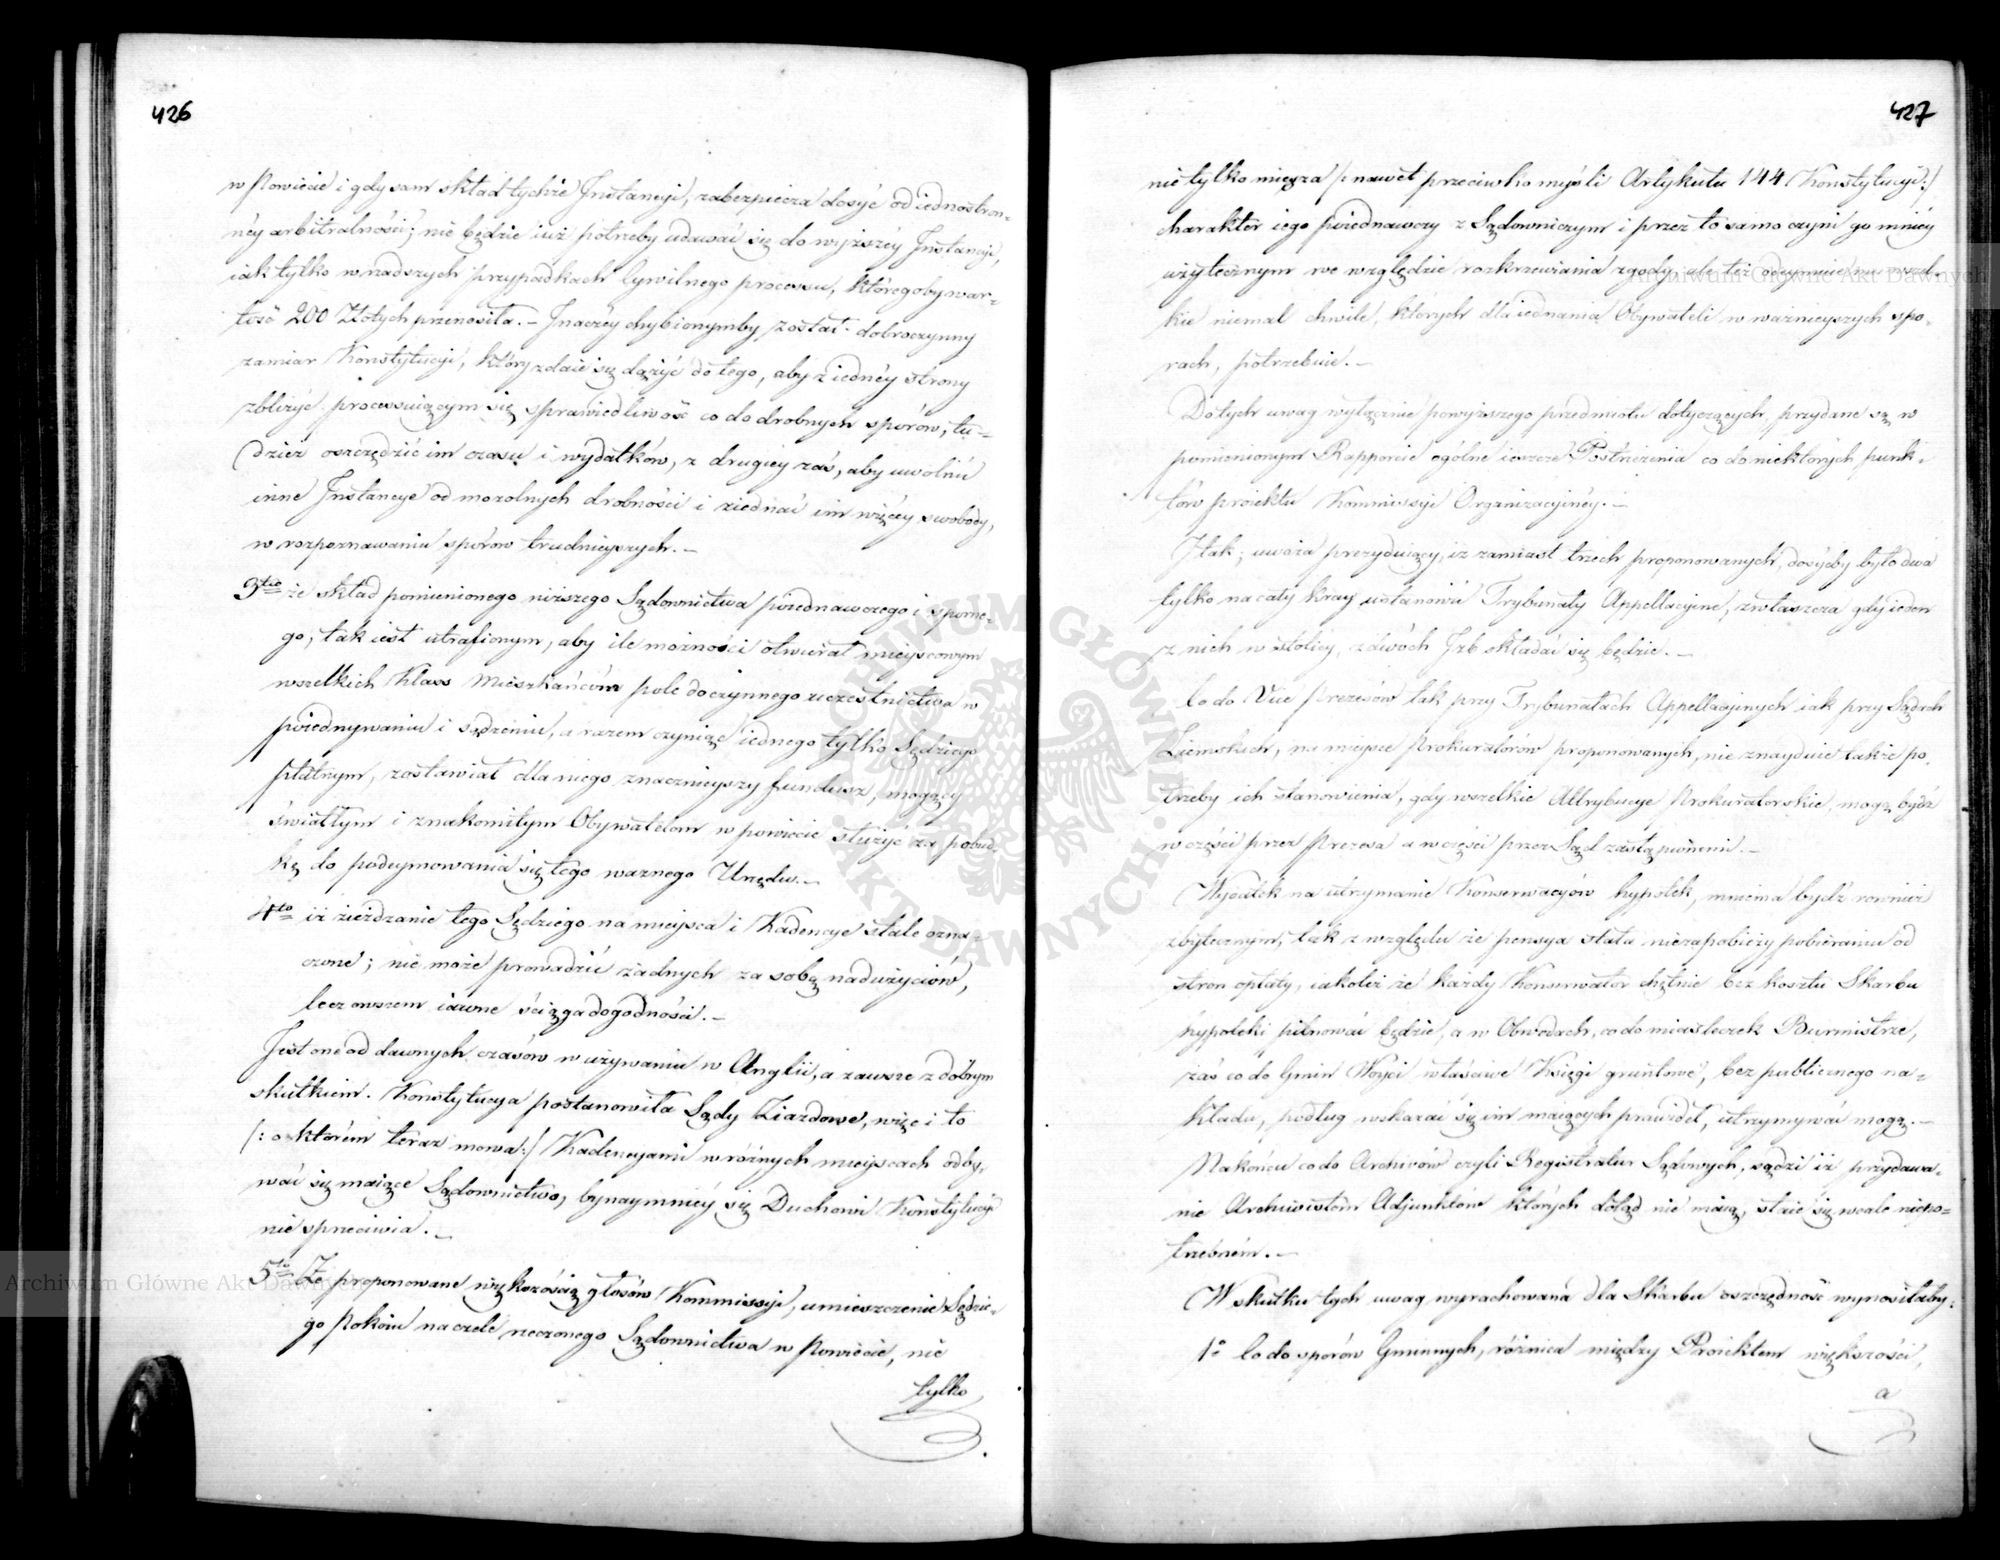 426
w Powiecie i gdy sam skład tychże Instancyi, zabezpiecza dosyć od iednostron-
néy arbitralności; nie będzie iuż potrzeby udawać się do wyższéy Instancyi,
iak tylko w rzadszych przypadkach Cywilnego processu, któregoby war-
tość 200 Złotych przenosiła. – Inaczéy chybionymby został dobroczynny
zamiar Konstytucyi, który zdaie się dążyć do tego, aby z iednéy strony
zbliżyć processuiącym się sprawiedliwość co do drobnych sporów, tu-
dzież oszczędzić im czasu i wydatków, z drugiey zaś, aby uwolnić
inne Instancye od mozolnych drobności i ziednać im więcéy swobody,
w rozpoznawaniu sporów trudnieyszych. –
3tio że skład pomienionego niższego Sądownictwa poiednawczego i sporne-
go, tak iest utrafionym, aby ile możności otwierał mieyscowym
wszelkich Klass Mieszkańcóm pole do czynnego uczestnictwa w
poiednywaniu i sądzeniu, a razem czyniąc iednego tylko Sędziego
płatnym, zostawiał dla niego znacznieyszy fundusz, mogący
światłym i znakomitym Obywatelom w powiecie służyć za pobud-
kę do podeymowania się tego ważnego Urzędu. –
4to iż zieżdzanie tego Sędziego na mieysca i Kadencye stale ozna-
czone; nie może prowadzić żadnych za sobą nadużyciów,
lecz owszem iawne ściąga dogodności. –
Jest one od dawnych czasów w używaniu w Anglii, a zawsze z dobrym
skutkiem. Konstytucya postanowiła Sądy Ziazdowe, więc i to
/: o którém teraz mowa :/ Kadencyami w różnych mieyscach odby-
wać się maiące Sądownictwo, bynaymniéy się Duchowi Konstytucyi
nie sprzeciwia. –
5to Że proponowane większością głosów Kommissyi, umieszczenie Sędzie-
go Pokoiu na czele rzeczonego Sądownictwa w Powiecie, nie
tylko
427
nie tylko miesza /: nawet przeciwko myśli Artykułu 144 Konstytucyi :/
charakter iego poiednawczy z Sądowniczym i przez to samo czyni go mniéy
użytecznym we względzie rozkrzewiania zgody, ale też odeymuie mu wszel-
kie niemal chwile, których dla iednania Obywateli w ważnieyszych spo-
rach, potrzebuie. –
Do tych uwag wyłącznie powyższego przedmiotu dotyczących, przydane są w
pomienionym Rapporcie ogólne ieszcze Postrzeżenia co do niektórych punk-
tów proiektu Kommissyi Organizacyinéy. –
I tak; uważa prezyduiący, iż zamiast trzech proponowanych, dosyćby było dwa
tylko na cały kray ustanowić Trybunały Appellacyine, zwłaszcza gdy ieden
z nich w stolicy, z dwóch Izb składać się będzie. –
Co do Vice Prezesów tak przy Trybunałach Appellacyinych iak przy Sądach
Ziemskich, na mieysce Prokuratorów proponowanych, nie znayduie także po-
trzeby ich stanowienia, gdy wszelkie Attrybucye Prokuratorskie, mogą bydź
w części przez Prezesa a w części przez Sąd zastąpionemi. –
Wydatek na utrzymanie Konserwacyów hypotek, mniema bydź rownież
zbytecznym, tak z względu że pensya stała niezapobieży pobieraniu od
stron opłaty, iakoteż że każdy Konserwator chętnie bez kosztu Skarbu
hypoteki pilnować będzie, a w Obwodach, co do miasteczek Burmistrze,
zaś co do Gmin Woyci właściwe Księgi gruntowe, bez publicznego na-
kładu, podług wskazać się im maiących prawideł, utrzymywać mogą. –
Nakońcu co do Archivów czyli Registratur Sądowych, sądzi iż przydawa-
nie Archiwistóm Adjunktów których dotąd nie maią, staie się wcale niepo-
trzebném. –
W skutku tych uwag wyrachowana dla Skarbu oszczędność wynosiłaby:
1o Co do sporów Gminnych, różnica między Proiektem większości,
a
Archiwum Główne Akt Dawnych
Archiwum Główne Akt Dawnych
ARCHIWUM GŁÓWNE
AKT DAWNYCH